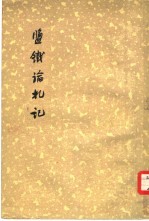 盐铁论札记